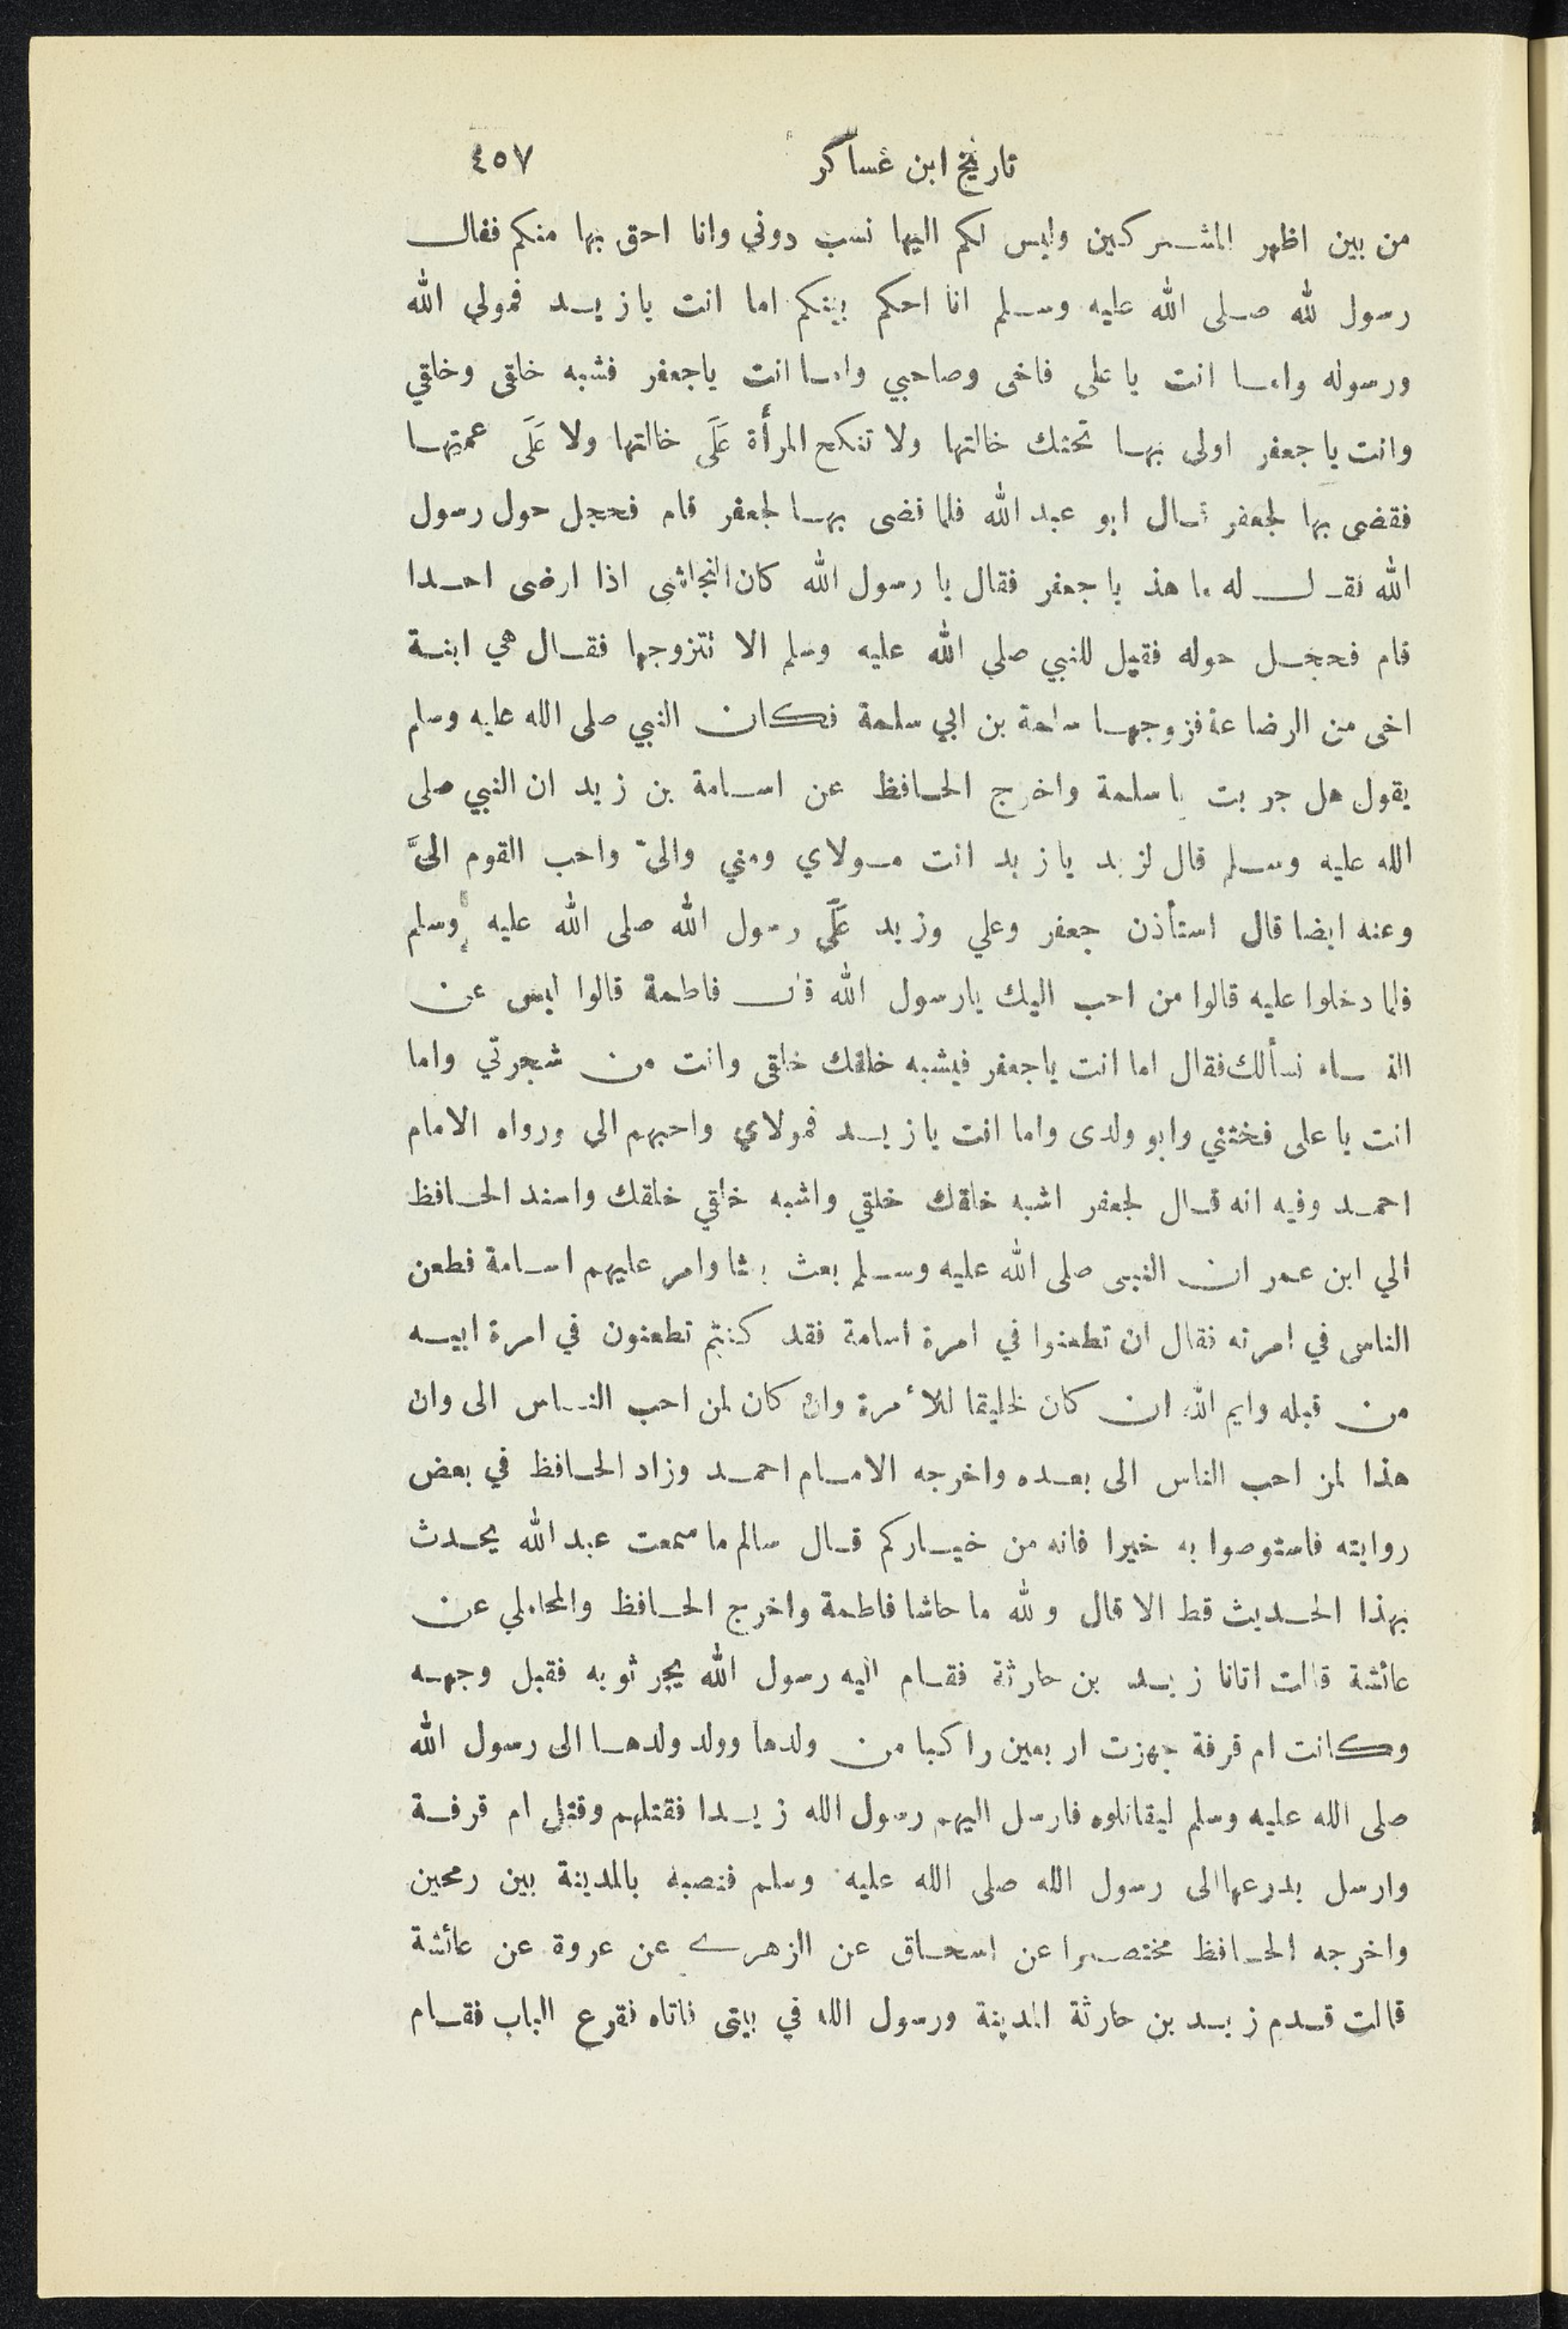 تاريخ ابن عساكر ٤٥٧
من بين اظهر المشركين وليس لكم اليها نسب دوني وانا احق بها منكم فقال
رسول لله صلى الله عليه وسلم انا احكم بينكم اما انت يا زيد فمولى الله
ورسوله واما انت يا على فاخى وصاحبي واما انت ياجعفر فشبه خلقى وخلقي
وانت يا جعفر اولى بها تحتك خالتها ولا تنكح المرأة عَلَى خالتها ولا عَلَى عمتها
فقضى بها لجعفر قال ابو عبد الله فلما قضى بها لجعفر قام فحجل حول رسول
الله فقال له ما هذ يا جعفر فقال يا رسول الله كان النجاشى اذا ارضى احدا
قام فحجل حوله فقيل للنبي صلى الله عليه وسلم الا تتزوجها فقال هي ابنة
اخى من الرضاعة فزوجها سلمة بن ابي سلمة فكان النبي صلى الله عليه وسلم
يقول هل جربت يا سلمة واخرج الحافظ عن اسامة بن زيد ان النبي صلى
الله عليه وسلم قال لزيد يا زيد انت مولاي ومني والىّ واحب القوم الىَّ
وعنه ايضا قال استأذن جعفر وعلي وزيد عَلَى رسول الله صلى الله عليه وسلم
فلما دخلوا عليه قالوا من احب اليك يارسول الله قال فاطمة قالوا ليس عن
النساء نسألك فقال اما انت ياجعفر فيشبه خلقك خلقى وانت من شجرتي واما
انت يا على فختني وابو ولدى واما انت يا زيد فمولاي واحبهم الى ورواه الامام
احمد وفيه انه قال لجعفر اشبه خلقك خلقي واشبه خلقي خلقك واسند الحافظ
الي ابن عمر ان النبى صلى الله عليه وسلم بعث بعثا وامر عليهم اسامة فطعن
الناس في امرته فقال ان تطعنوا في امرة اسامة فقد كنتم تطعنون في امرة ابيه
من قبله وايم الله ان كان لخليقا للأمرة وان كان لمن احب الناس الى وان
هذا لمن احب الناس الى بعده واخرجه الامام احمد وزاد الحافظ في بعض
روايته فاستوصوا به خيرا فانه من خياركم قال سالم ما سمعت عبد الله يحدث
بهذا الحديث قط الا قال ولله ما حاشا فاطمة واخرج الحافظ والمحاملي عن
عائشة قالت اتانا زيد بن حارثة فقام اليه رسول الله يجر ثوبه فقبل وجهه
وكانت ام قرفة جهزت اربعين راكبا من ولدها وولد ولدها الى رسول الله
صلى الله عليه وسلم ليقاتلوه فارسل اليهم رسول الله زيدا فقتلهم وقتل ام قرفة
وارسل بدرعها الى رسول الله صلى الله عليه وسلم فنصبه بالمدينة بين رمحين
واخرجه الحافظ مختصرا عن اسحاق عن الزهرى عن عروة عن عائشة
قالت قدم زيد بن حارثة المدينة ورسول الله في بيتى فاتاه فقرع الباب فقام